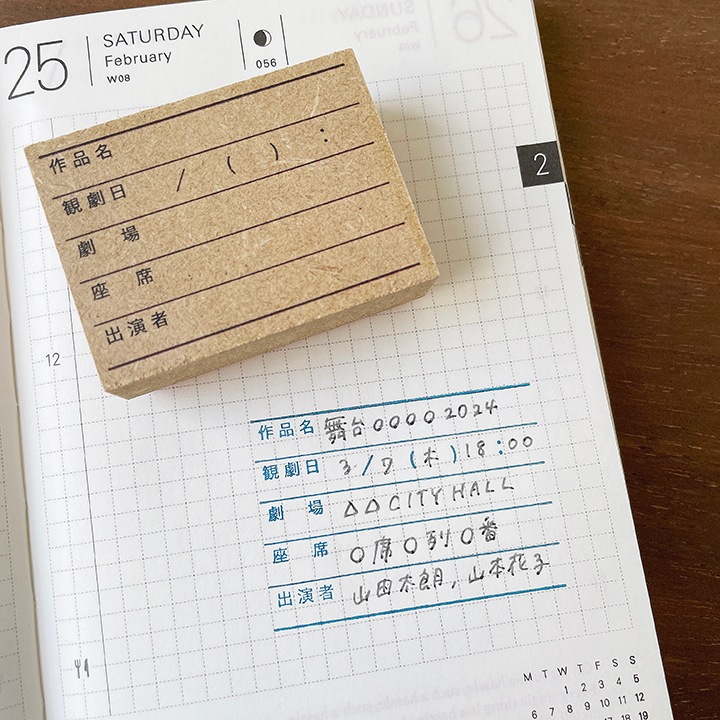 25
SATURDAY
February
W08
056
26
SUNDAY
February
W09
2
作品名
観劇日 / ( ) :
劇 場
座 席
出演者
12
作品名 舞台0000 2024
観劇日 3/7 (木) 18:00
劇 場 △△CITY HALL
座 席 〇席〇列〇番
出演者 山田太朗, 山本花子
M T W T F S S
1 2 3 4 5
6 7 8 9 10 11 12
17 18 19